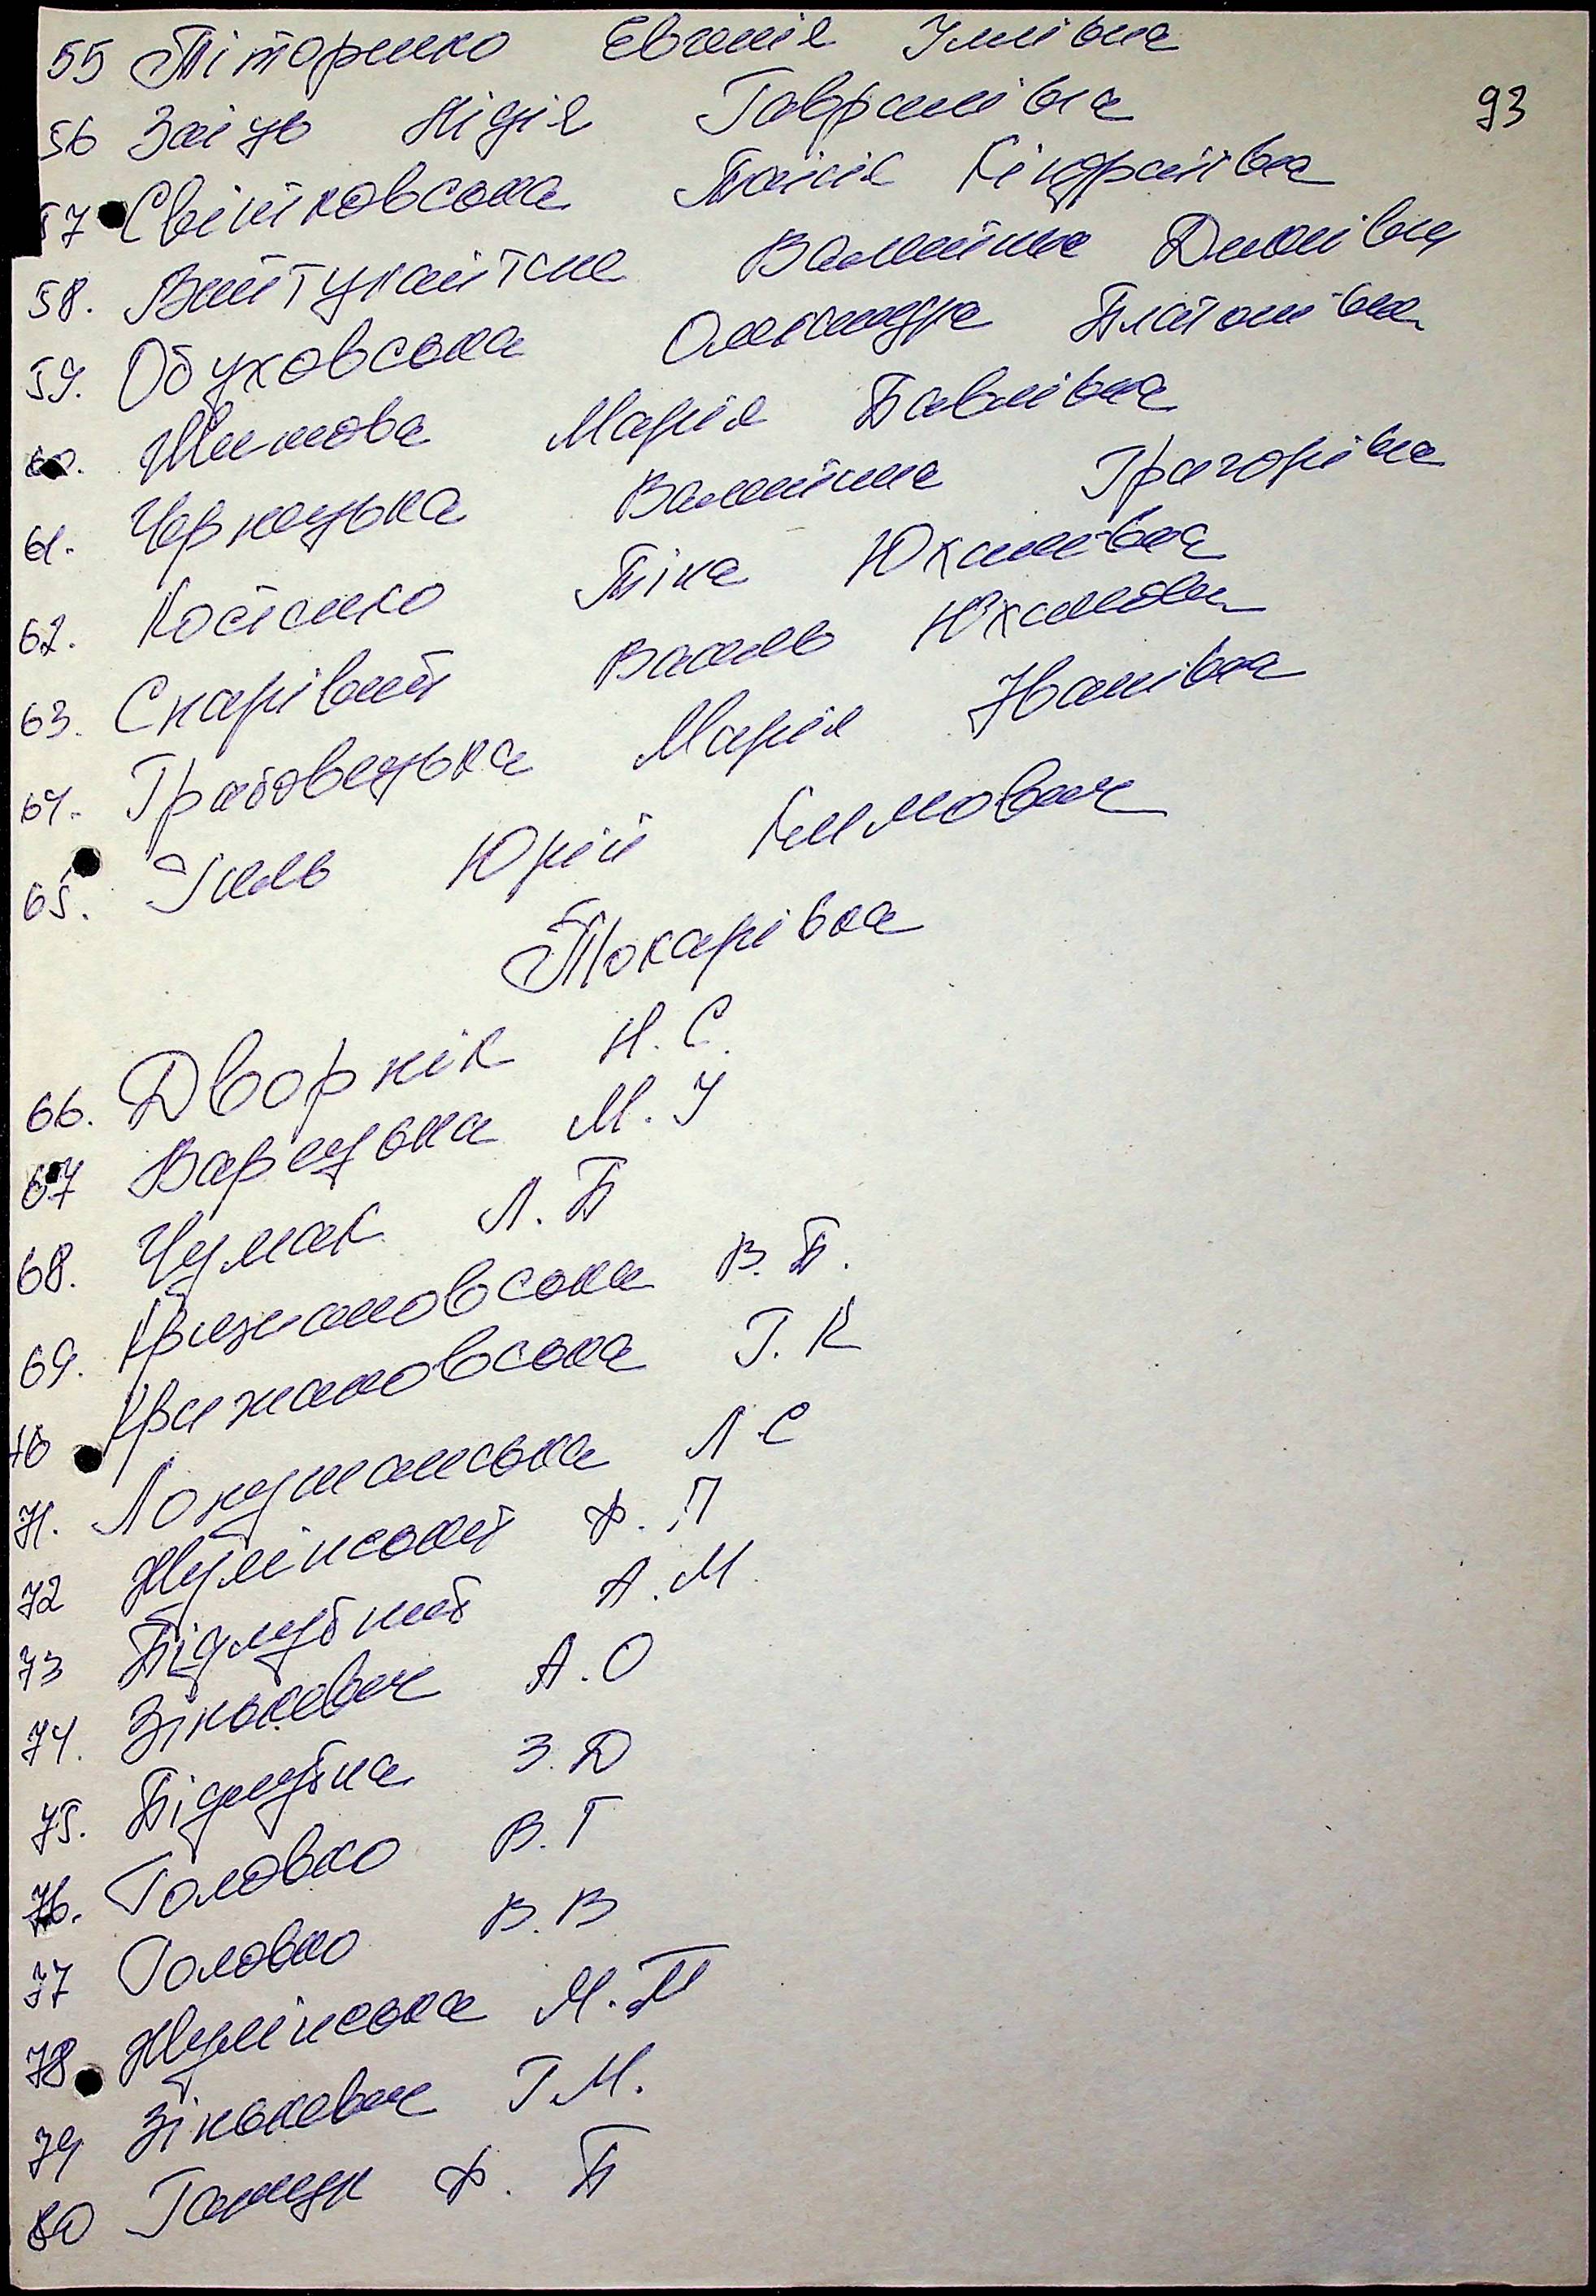 55 Тіторенко Евгенія Іллівна
93
56 Заїць Лідія Гаврилівна
57 Світковська Таїсія Кіндратівна
58. Валентина Диківна
59. Обуховська Олександра Платонівна
60. Шитова Марія Павлівна
61. Чернецька Валентина Григорівна
62. Костенко Ніна Юхимівна
63. Скарівний Василь Юхимович
64. Грабовецька Марія Іванівна
65. Гиль Юрій Климович
Токарівка
66. Дворнік Н. С.
67 Варецька М. І
68. Чумак Л. П
69. Крижановська В. П.
70 Крижановська Г. К
71. Локушанська Л С
72 Жулінський Ф. П
73 Підлубний А. М.
74. Зінькевич А. О
75. Підлубна З. Д
76. Головко В. Г
77 Головко В. В
78. Жулінська М. П
79 Зінькевич Г М.
80 Ф. П